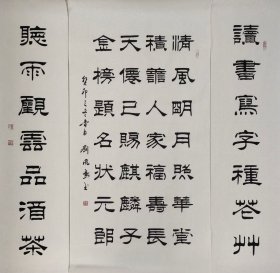 讀書寫字種花艸
清風明月照華堂
積譱人家福壽長
天僊已賜麒麟子
金榜題名狀元郎
聽雨觀雲品酒茶